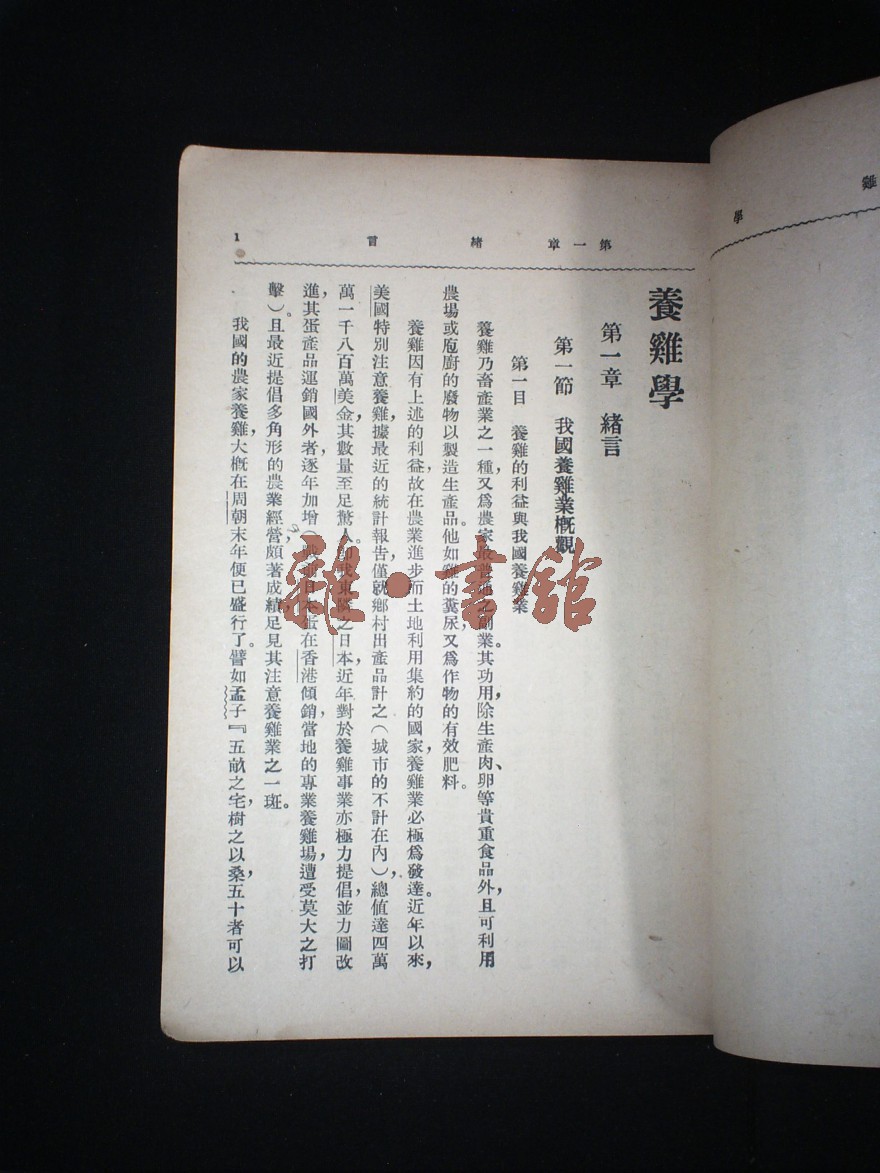 雞
學
第一章 緒言 1
養雞學
第一章 緒言
第一節 我國養雞業概觀
第一目 養雞的利益與我國養雞業
養雞乃畜產業之一種，又爲農家最普遍之副業。其功用，除生產肉、卵等貴重食品外，且可利用
農場或庖廚的廢物以製造生產品。他如雞的糞尿，又爲作物的有效肥料。
養雞因有上述的利益，故在農業進步而土地利用集約的國家，養雞業必極爲發達。近年以來，
美國特別注意養雞，據最近的統計報告，僅就鄉村出產品計之（城市的不計在內），總值達四萬
萬一千八百萬美金，其數量至足驚人。卽我東隣之日本，近年對於養雞事業亦極力提倡，並力圖改
進，其蛋產品運銷國外者，逐年加增（戰前日本蛋在香港傾銷，當地的專業養雞場，遭受莫大之打
擊）。且最近提倡多角形的農業經營，頗著成績，足見其注意養雞業之一斑。
我國的農家養雞，大概在周朝末年便已盛行了。譬如孟子『五畝之宅，樹之以桑，五十者可以
雜·書館